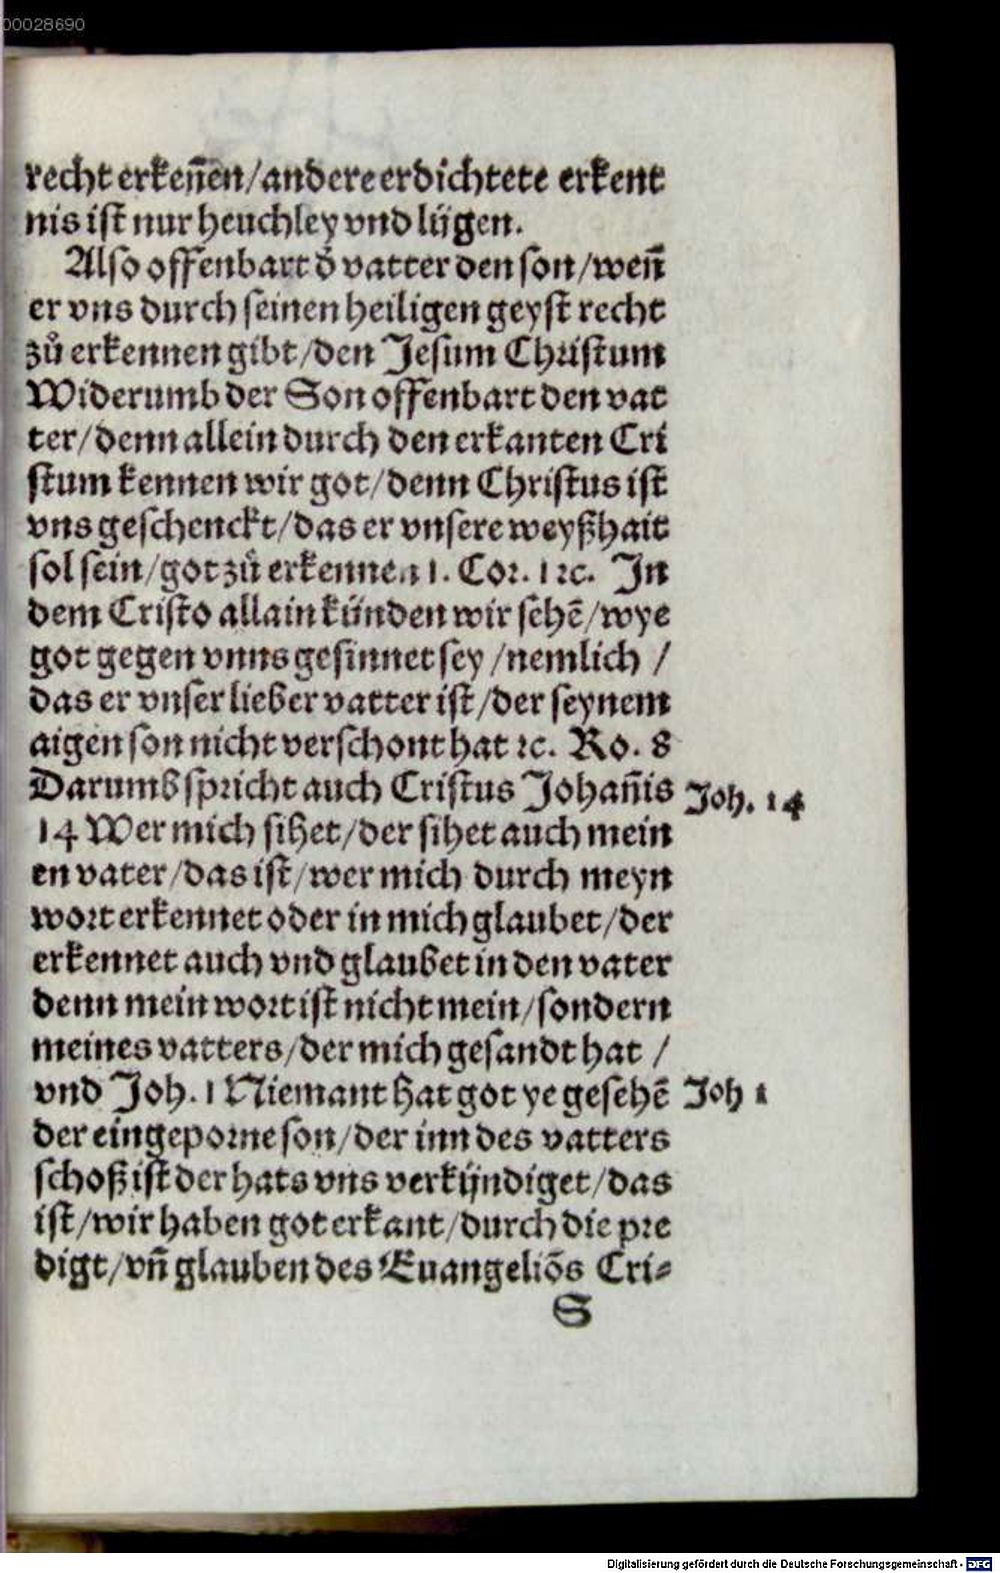 00028690
recht erkeñen/andere erdichtete erkent
nis ist nur heuchley vnd lügen.
Also offenbart d̕ vatter den son/weñ
er vns durch seinen heiligen geyst recht
zů erkennen gibt/den Jesum Christum
Widerumb der Son offenbart den vat
ter/denn allein durch den erkanten Cri
stum kennen wir got/denn Christus ist
vns geschenckt/das er vnsere weyßhait
sol sein/got zů erkennen 1. Cor. 1 ꝛc. In
dem Cristo allain künden wir sehē/wye
got gegen vnns gesinnet sey/nemlich /
das er vnser lieber vatter ist/der seynem
aigen son nicht verschont hat ꝛc. Ro. 8
Darumb spricht auch Cristus Johañis
Joh. 14
14 Wer mich sihet/der sihet auch mein
en vater/das ist/wer mich durch meyn
wort erkennet oder in mich glaubet/der
erkennet auch vnd glaubet in den vater
denn mein wort ist nicht mein/sondern
meines vatters/der mich gesandt hat /
vnd Joh. 1 Niemant hat got ye gesehē
Joh 1
der eingeporne son/der inn des vatters
schoß ist der hats vns verkündiget/das
ist/wir haben got erkant/durch die pre
digt/vñ glauben des Euangeliōs Cri⸗
S
Digitalisierung gefördert durch die Deutsche Forschungsgemeinschaft - DFG